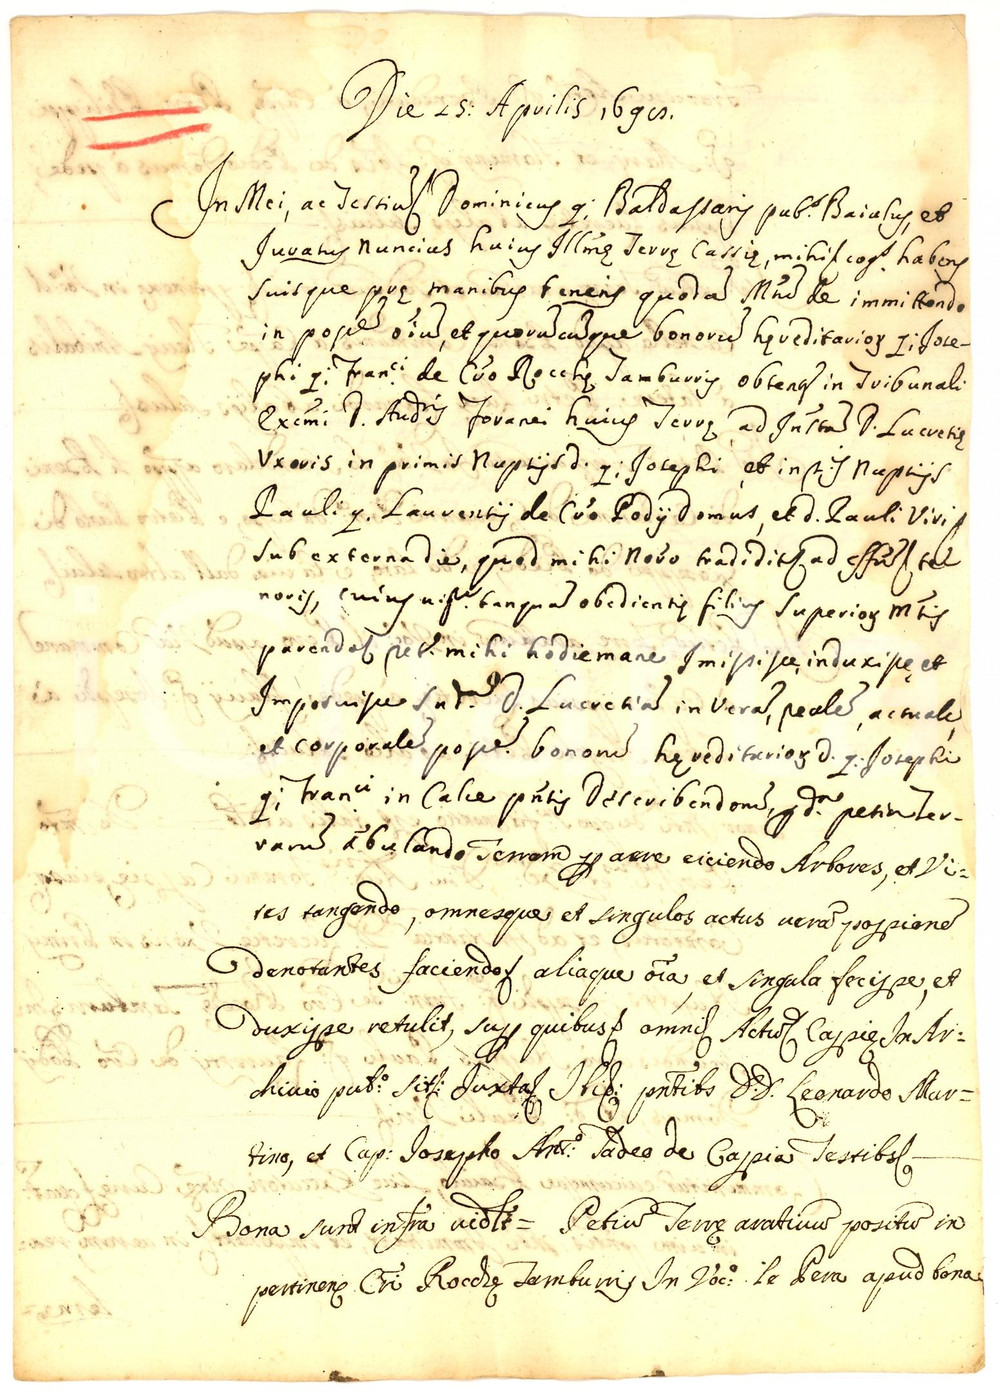 Die 25: Aprilis 169
In Mei, ac Testiu Dominicus q: Baldassaris pub.s Baiulus, et
Juratus Nuncius huius Illmę Terrę Cassię, mihi cog.s habens
suisque prę manibus tenens quodā Mtū de immittendo
in posse oiū, et quorūcūque bonorū hęreditarior q: Jose-
phi q: Fran.ci de Cro Rocchę Tamburris obtens in Tribunali
Excmi D. huius Terrę ad Instā D. Lucretię
Vxoris in primis Nuptijs d. q: Josephi et in Nuptijs
Pauli q. Laurentij de Cro Podij domus, et d. Pauli Viri
sub externa die, quod mihi Novo tradidit ad effū te-
noris, cuius tanquā obedientię filius superior Mtis
parendo mihi hodie mane Imisisse, induxisse et
Imposuisse D. Lucretiā in verā, realē, actualē,
et corporalē posse. bonorū hęreditarior d. q: Josephi
q: Fran.ci in Calce pntis Describendorū, petiū Ter-
rarū Abulando Terram p aere eiciendo Arbores, et Vi=
tes tangendo, omnesque et singulos actus verā possionē
denotantes faciendo aliaque oīa, et singula fecisse, et
duxisse retulit, sup quibus omnis Actū Cassię In Ar=
chivio pub.o sit: Juxta Ibi: pntibs D.D. Leonardo Mar=
tino, et Cap: Josepho Ant.o Tadeo de Cassia Testibs
Bona sunt infra vidlt= Petiū Terrę aratiuū positū in
pertinens Cri Rocchę Tamburris In Voc.o le Pera apud bona